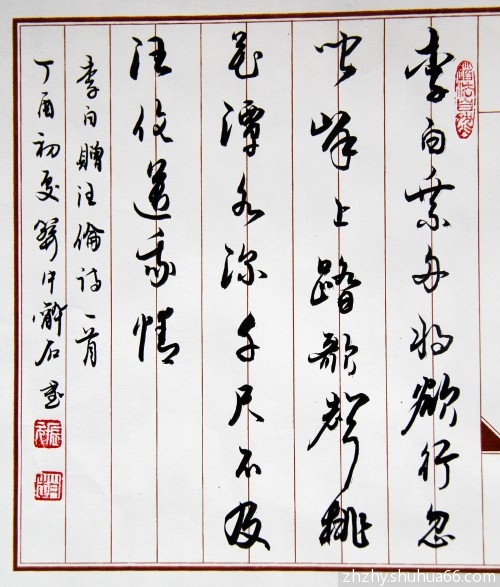 道法自然
李白乘舟将欲行忽
闻岸上踏歌聲桃
花潭水深千尺不及
汪伦送我情
李白贈汪倫诗一首
丁酉初夏石书
zhzhy.shuhua66.com